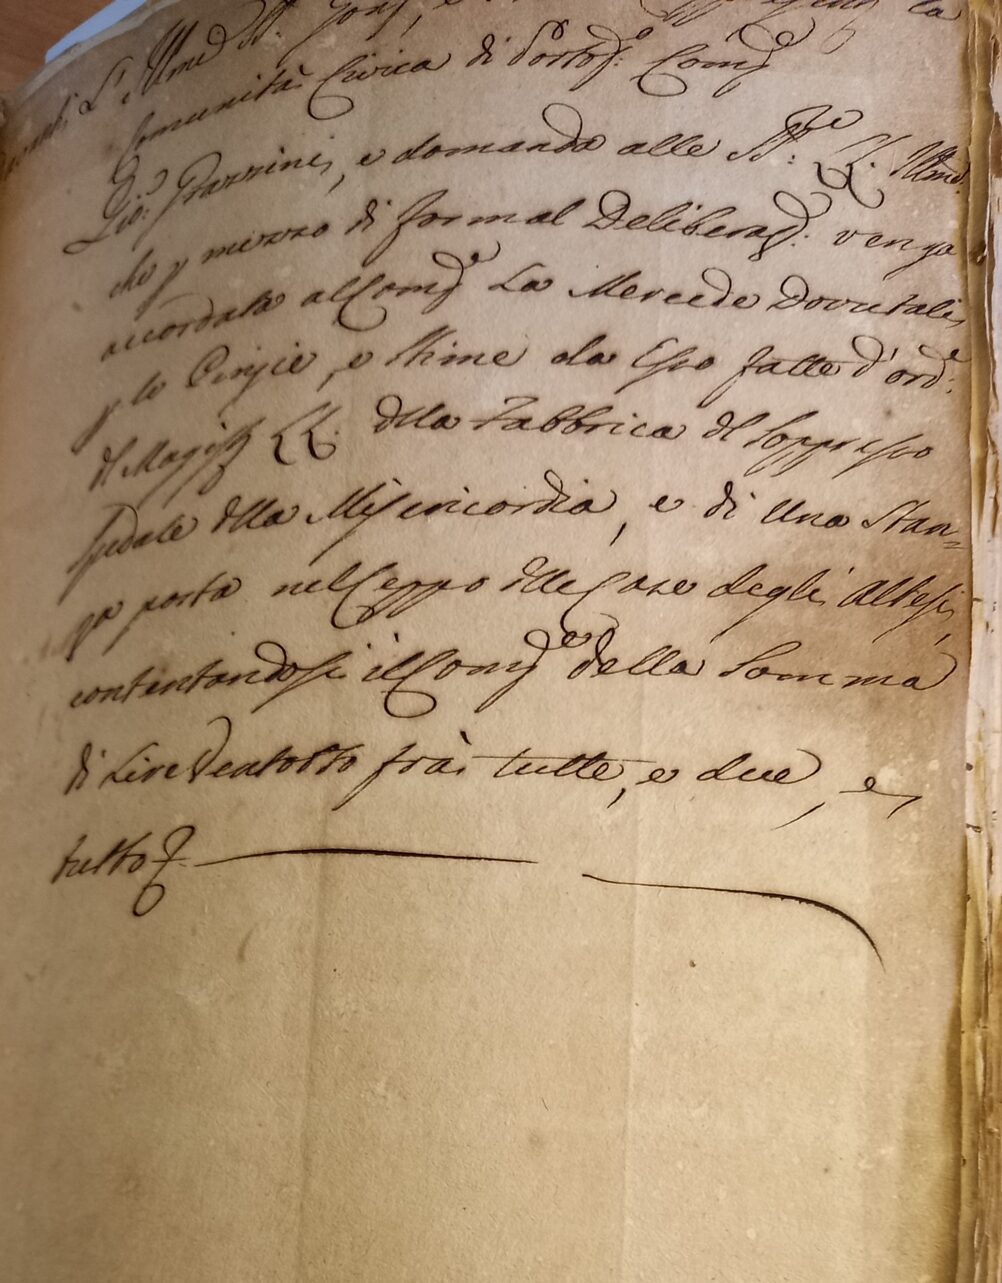 LL. Illmi SS. Gonf., e la
Comunità Civica di Portof.o Comp.e
Gio: Grazzini, e domanda alle SS.rie LL. Illme
che p mezzo di formal Deliberaz: venga
accordata al Comp.e La Mercede Dovutali
p le Perizie, e Stime da Esso fatte d'ord.e
del Mag.to LL: della Fabbrica del Soppresso
Spedale della Misericordia, e di Una Stan=
za posta nel Ceppo delle Case degli Albesi,
contentandosi il Comp.e della Somma
di Lire Ventotto frà tutte, e due, e
tutto